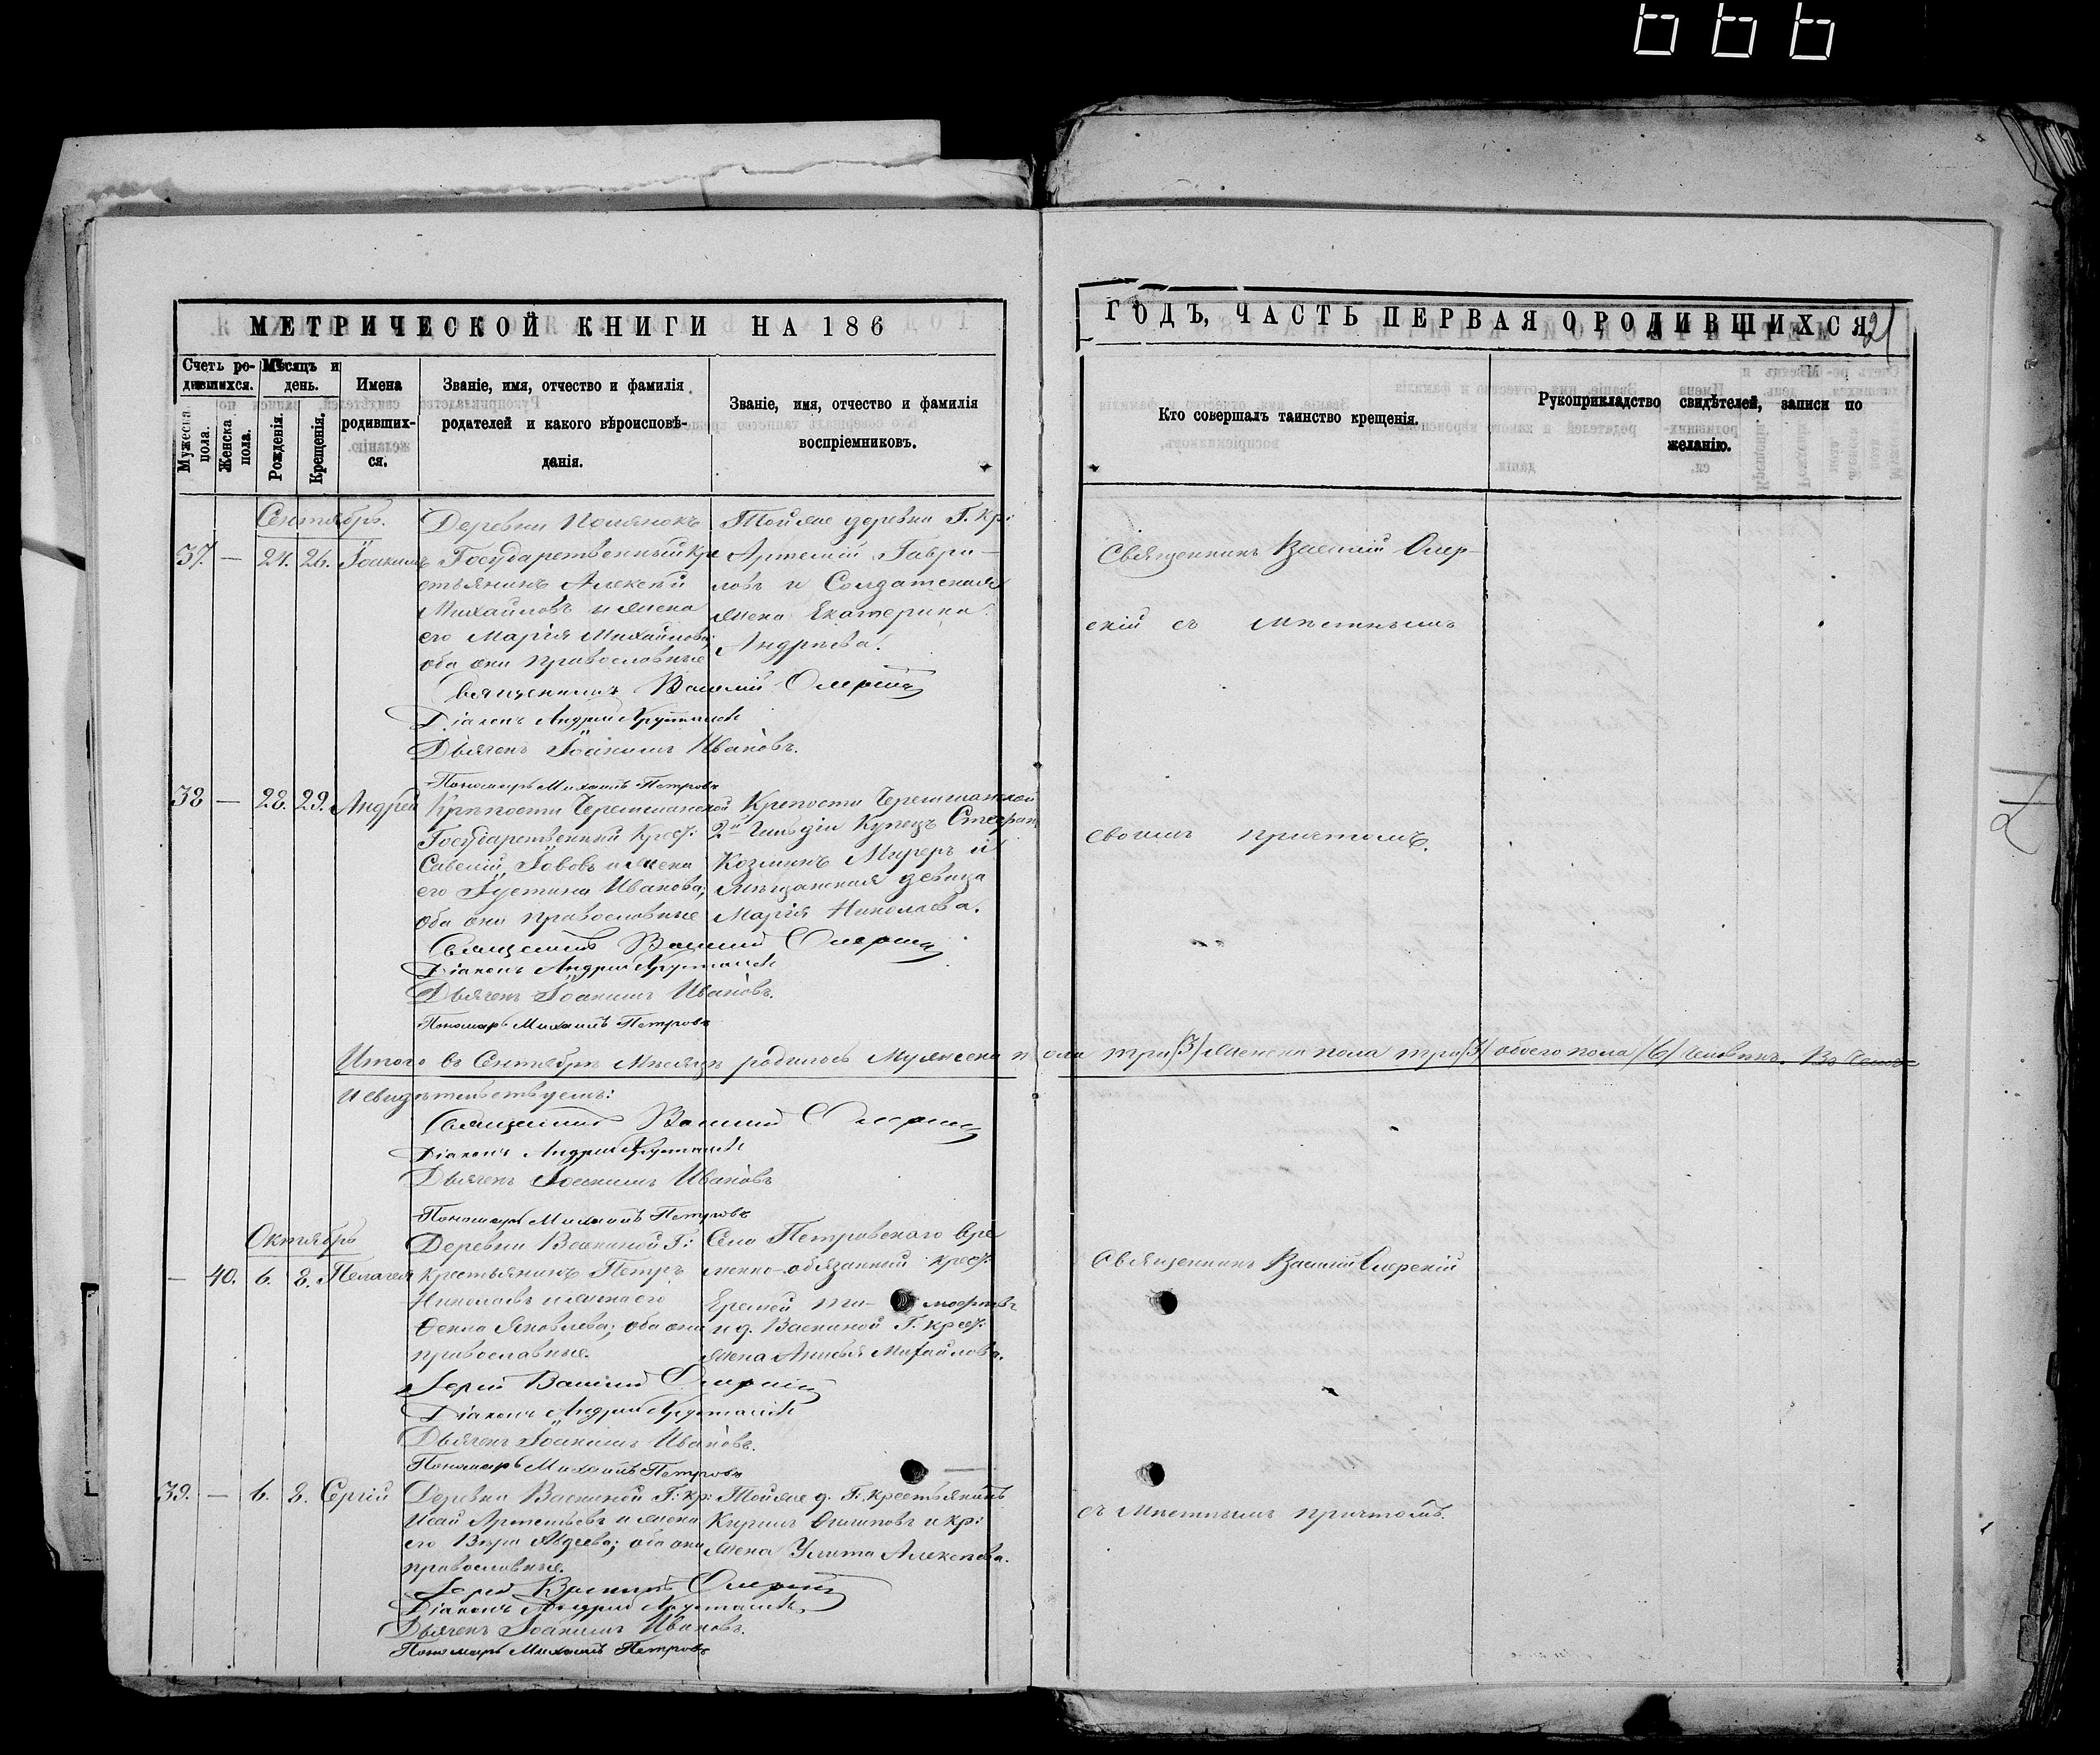 МЕТРИЧЕСКОЙ КНИГИ НА 186
Счетъ ро-
дившихся.
Мужеска пола.
Женска пола.
Мѣсяцъ и
день.
Рожденія.
Крещенія.
Имена
родивших-
ся.
Званіе, имя, отчество и фамилія
родителей и какого вѣроисповѣ-
данія.
Званіе, имя, отчество и фамилія
воспріемниковъ.
Сентябрь.
37. — 24. 26. Іоакимъ
Деревни
Государственный кре
стьянинъ Алексѣй
Михайловъ и жена
его Марія Михайлова;
оба они православные
Тойже деревни Г. Кр:
Артемій Гаври-
ловъ и Солдатская
жена Екатерина
Андрѣева.
Священникъ Василій
Діаконъ Андрей
Дьячекъ Іоакимъ Ивановъ.
Пономарь Михаилъ Петровъ
38 — 28. 29. Андрей
Крѣпости Черемшанской
Государственный Крест:
Савелій Іововъ и жена
его Іустина Иванова;
оба они православные
Крепости Черемшанской
2й Гильдіи Купецъ Стефанъ
Козминъ и
Мѣщанская дѣвица
Марія Николаева.
Священникъ Василій
Діаконъ Андрей
Дьячекъ Іоакимъ Ивановъ.
Пономарь Михаилъ Петровъ
Итого въ Сентябрѣ Мѣсяцѣ родилось Мужеска пола три /3/ Женска пола три /3/ обоего пола /6/ Человѣкъ. Въ Чемъ
и свидѣтельствуемъ:
Священникъ Василій
Діаконъ Андрей
Дьячекъ Іоакимъ Ивановъ
Пономарь Михаилъ Петровъ
Октябрь
— 40. 6. 8. Пелагея
Деревни Васкиной Г:
крестьянинъ Петръ
Николаевъ и жена его
Ѳекла Яковлева; оба они
православные.
Села Петровскаго вре
менно-обязанный крест:
Еремей Ти- моѳѣевъ
и д. Васкиной Г. крест:
жена Анисья Михайлова.
Іерей Василій
Діаконъ Андрей
Дьячекъ Іоакимъ Ивановъ.
Пономарь Михаилъ Петровъ
39. — 6. 8. Сергій
Деревни Васкиной Г: кр:
Исай Артемьевъ и жена
его Вѣра Авдеева; оба они
православные.
Тойже д. Г: крестьянинъ
Кирилъ Осиповъ и кр:
жена Улита Алексѣева.
Іерей Василій
Діаконъ Андрей
Дьячекъ Іоакимъ Ивановъ.
Пономарь Михаилъ Петровъ
ГОДЪ, ЧАСТЬ ПЕРВАЯ О РОДИВШИХСЯ
21
Кто совершалъ таинство крещенія.
Рукоприкладство свидѣтелей, записи по
желанію.
Священникъ Василій
скій съ Мѣстнымъ
своимъ причтомъ.
Священникъ Василій
съ Мѣстнымъ причтомъ.